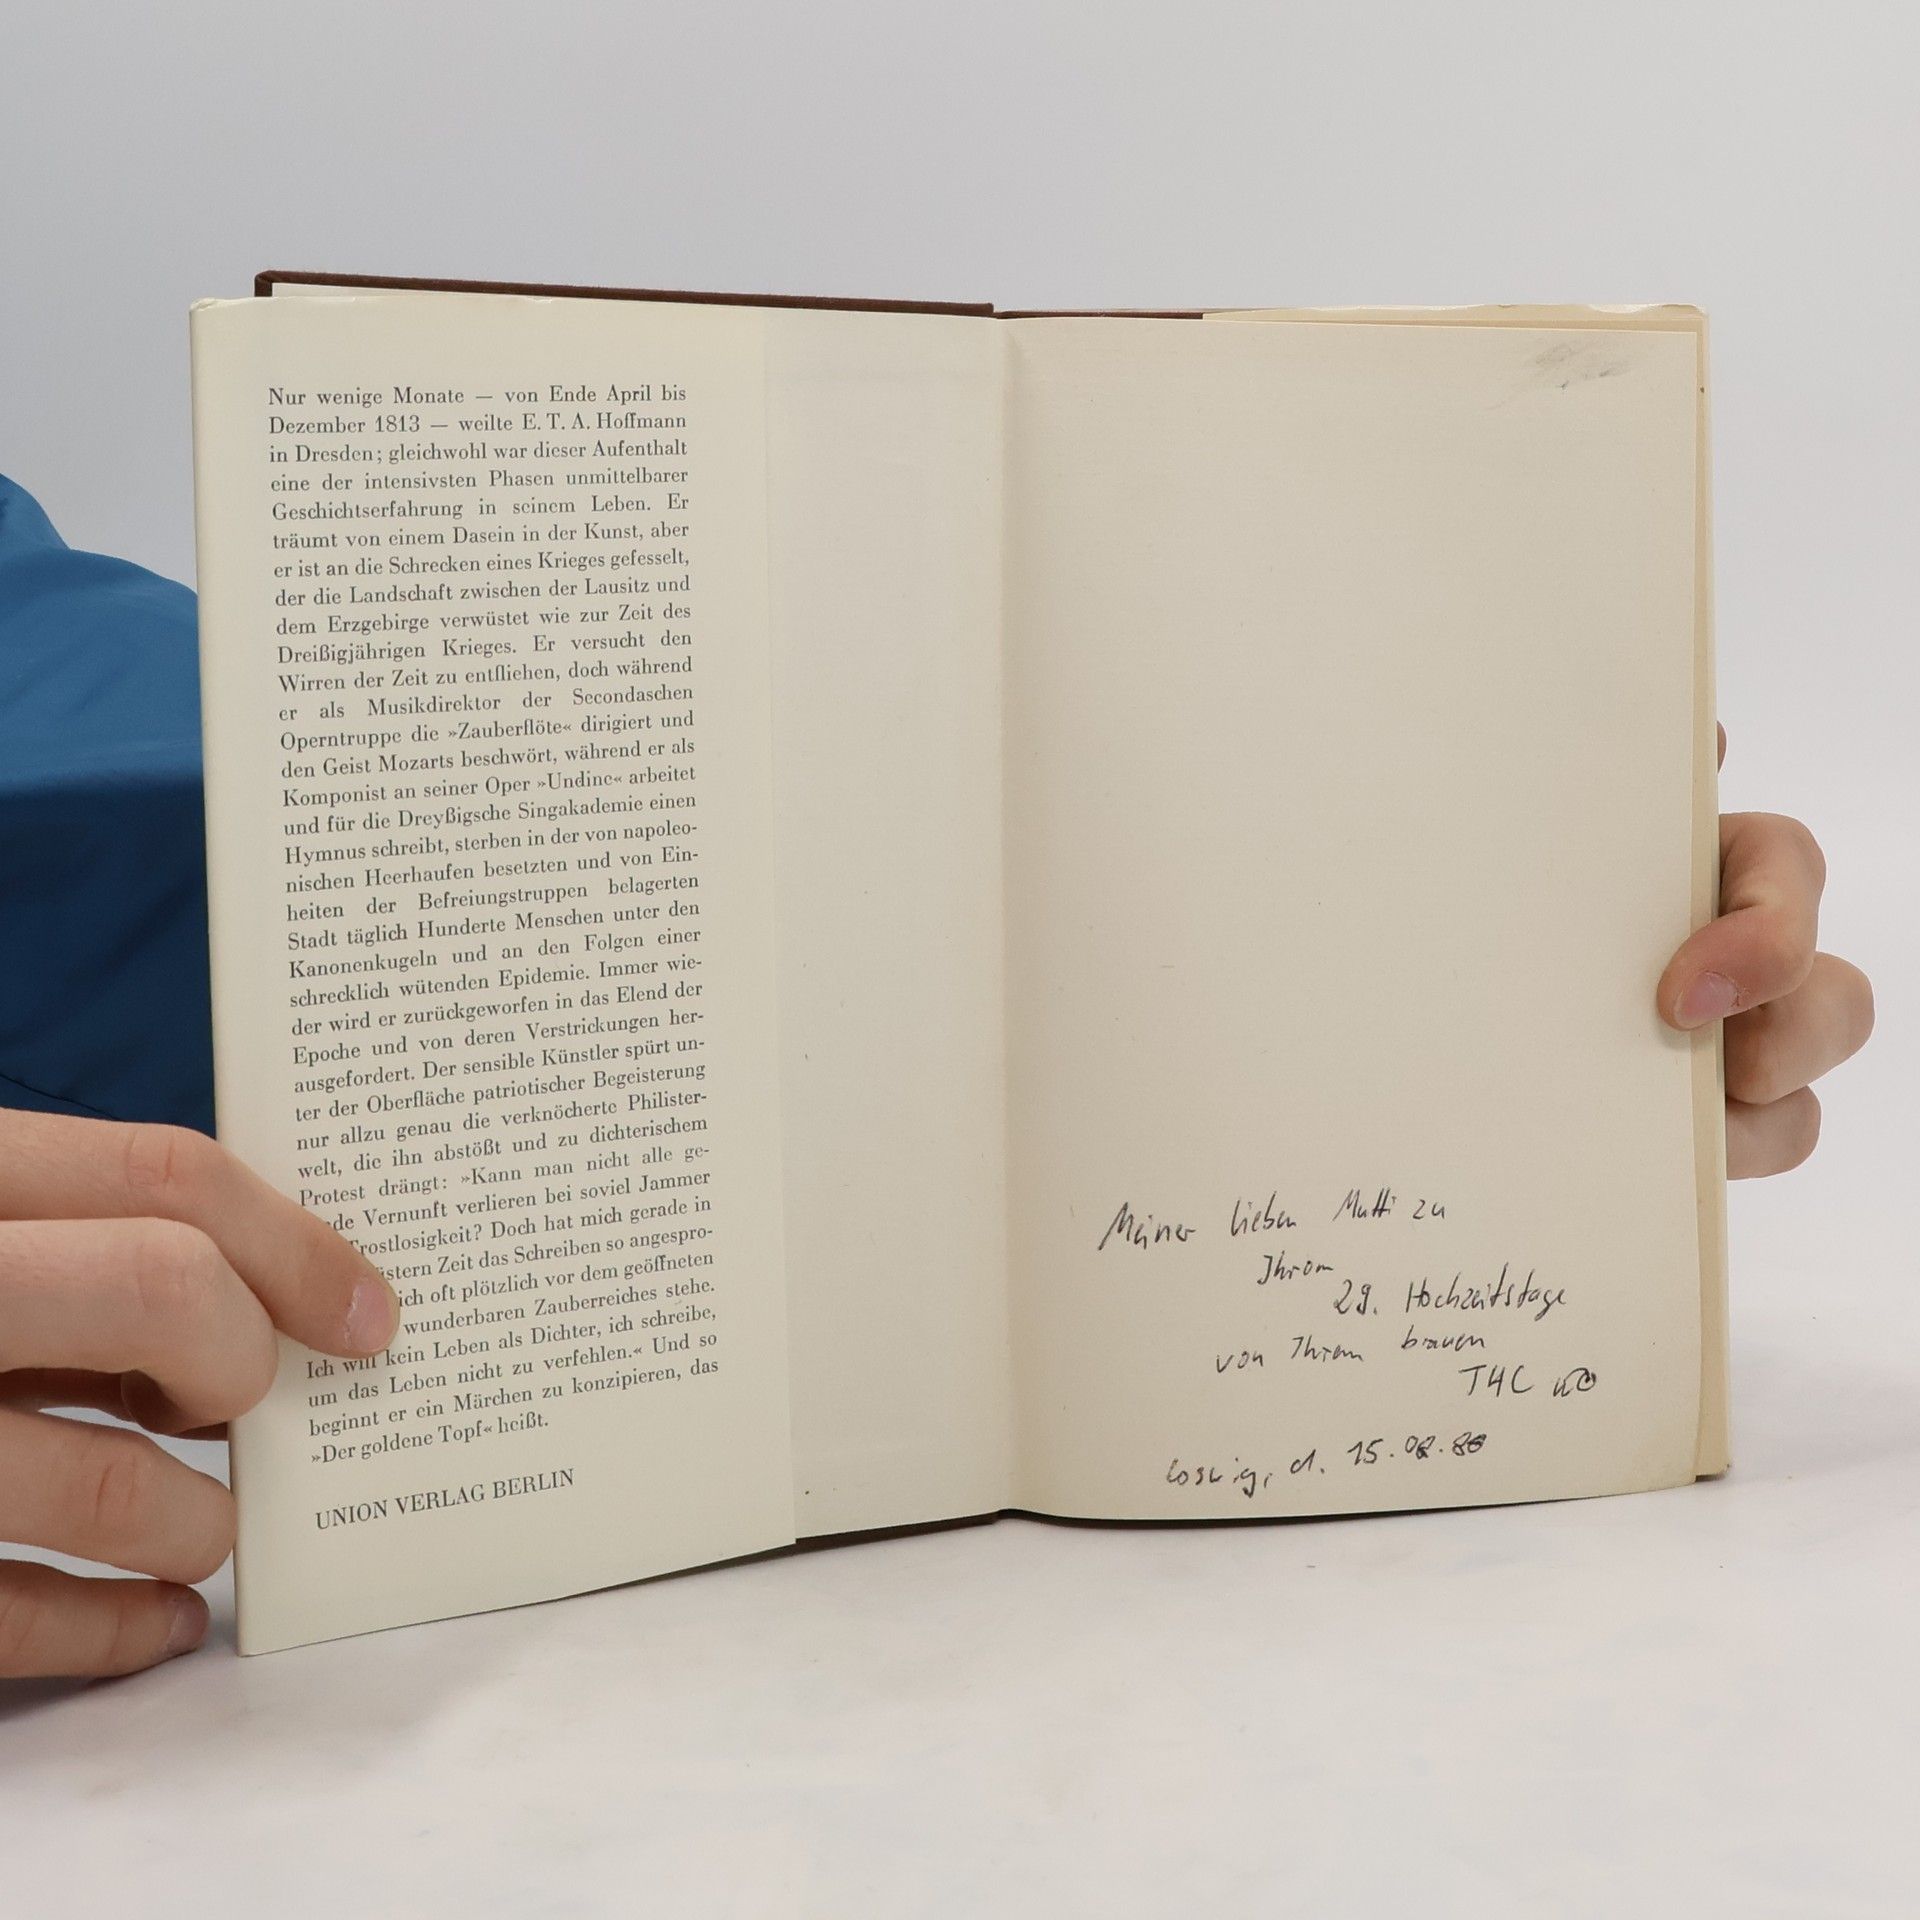 Nur wenige Monate — von Ende April bis
Dezember 1813 — weilte E. T. A. Hoffmann
in Dresden; gleichwohl war dieser Aufenthalt
eine der intensivsten Phasen unmittelbarer
Geschichtserfahrung in seinem Leben. Er
träumt von einem Dasein in der Kunst, aber
er ist an die Schrecken eines Krieges gefesselt,
der die Landschaft zwischen der Lausitz und
dem Erzgebirge verwüstet wie zur Zeit des
Dreißigjährigen Krieges. Er versucht den
Wirren der Zeit zu entfliehen, doch während
er als Musikdirektor der Secondaschen
Operntruppe die »Zauberflöte« dirigiert und
den Geist Mozarts beschwört, während er als
Komponist an seiner Oper »Undine« arbeitet
und für die Dreyßigsche Singakademie einen
Hymnus schreibt, sterben in der von napoleo-
nischen Heerhaufen besetzten und von Ein-
heiten der Befreiungstruppen belagerten
Stadt täglich Hunderte Menschen unter den
Kanonenkugeln und an den Folgen einer
schrecklich wütenden Epidemie. Immer wie-
der wird er zurückgeworfen in das Elend der
Epoche und von deren Verstrickungen her-
ausgefordert. Der sensible Künstler spürt un-
ter der Oberfläche patriotischer Begeisterung
nur allzu genau die verknöcherte Philister-
welt, die ihn abstößt und zu dichterischem
Protest drängt: »Kann man nicht alle ge-
de Vernunft verlieren bei soviel Jammer
Trostlosigkeit? Doch hat mich gerade in
istern Zeit das Schreiben so angespro-
ich oft plötzlich vor dem geöffneten
wunderbaren Zauberreiches stehe.
Ich will kein Leben als Dichter, ich schreibe,
um das Leben nicht zu verfehlen.« Und so
beginnt er ein Märchen zu konzipieren, das
»Der goldene Topf« heißt.
UNION VERLAG BERLIN
Meiner lieben Mutti zu
Ihrem
29. Hochzeitstage
von Ihrem braven
Coswig, d. 15.